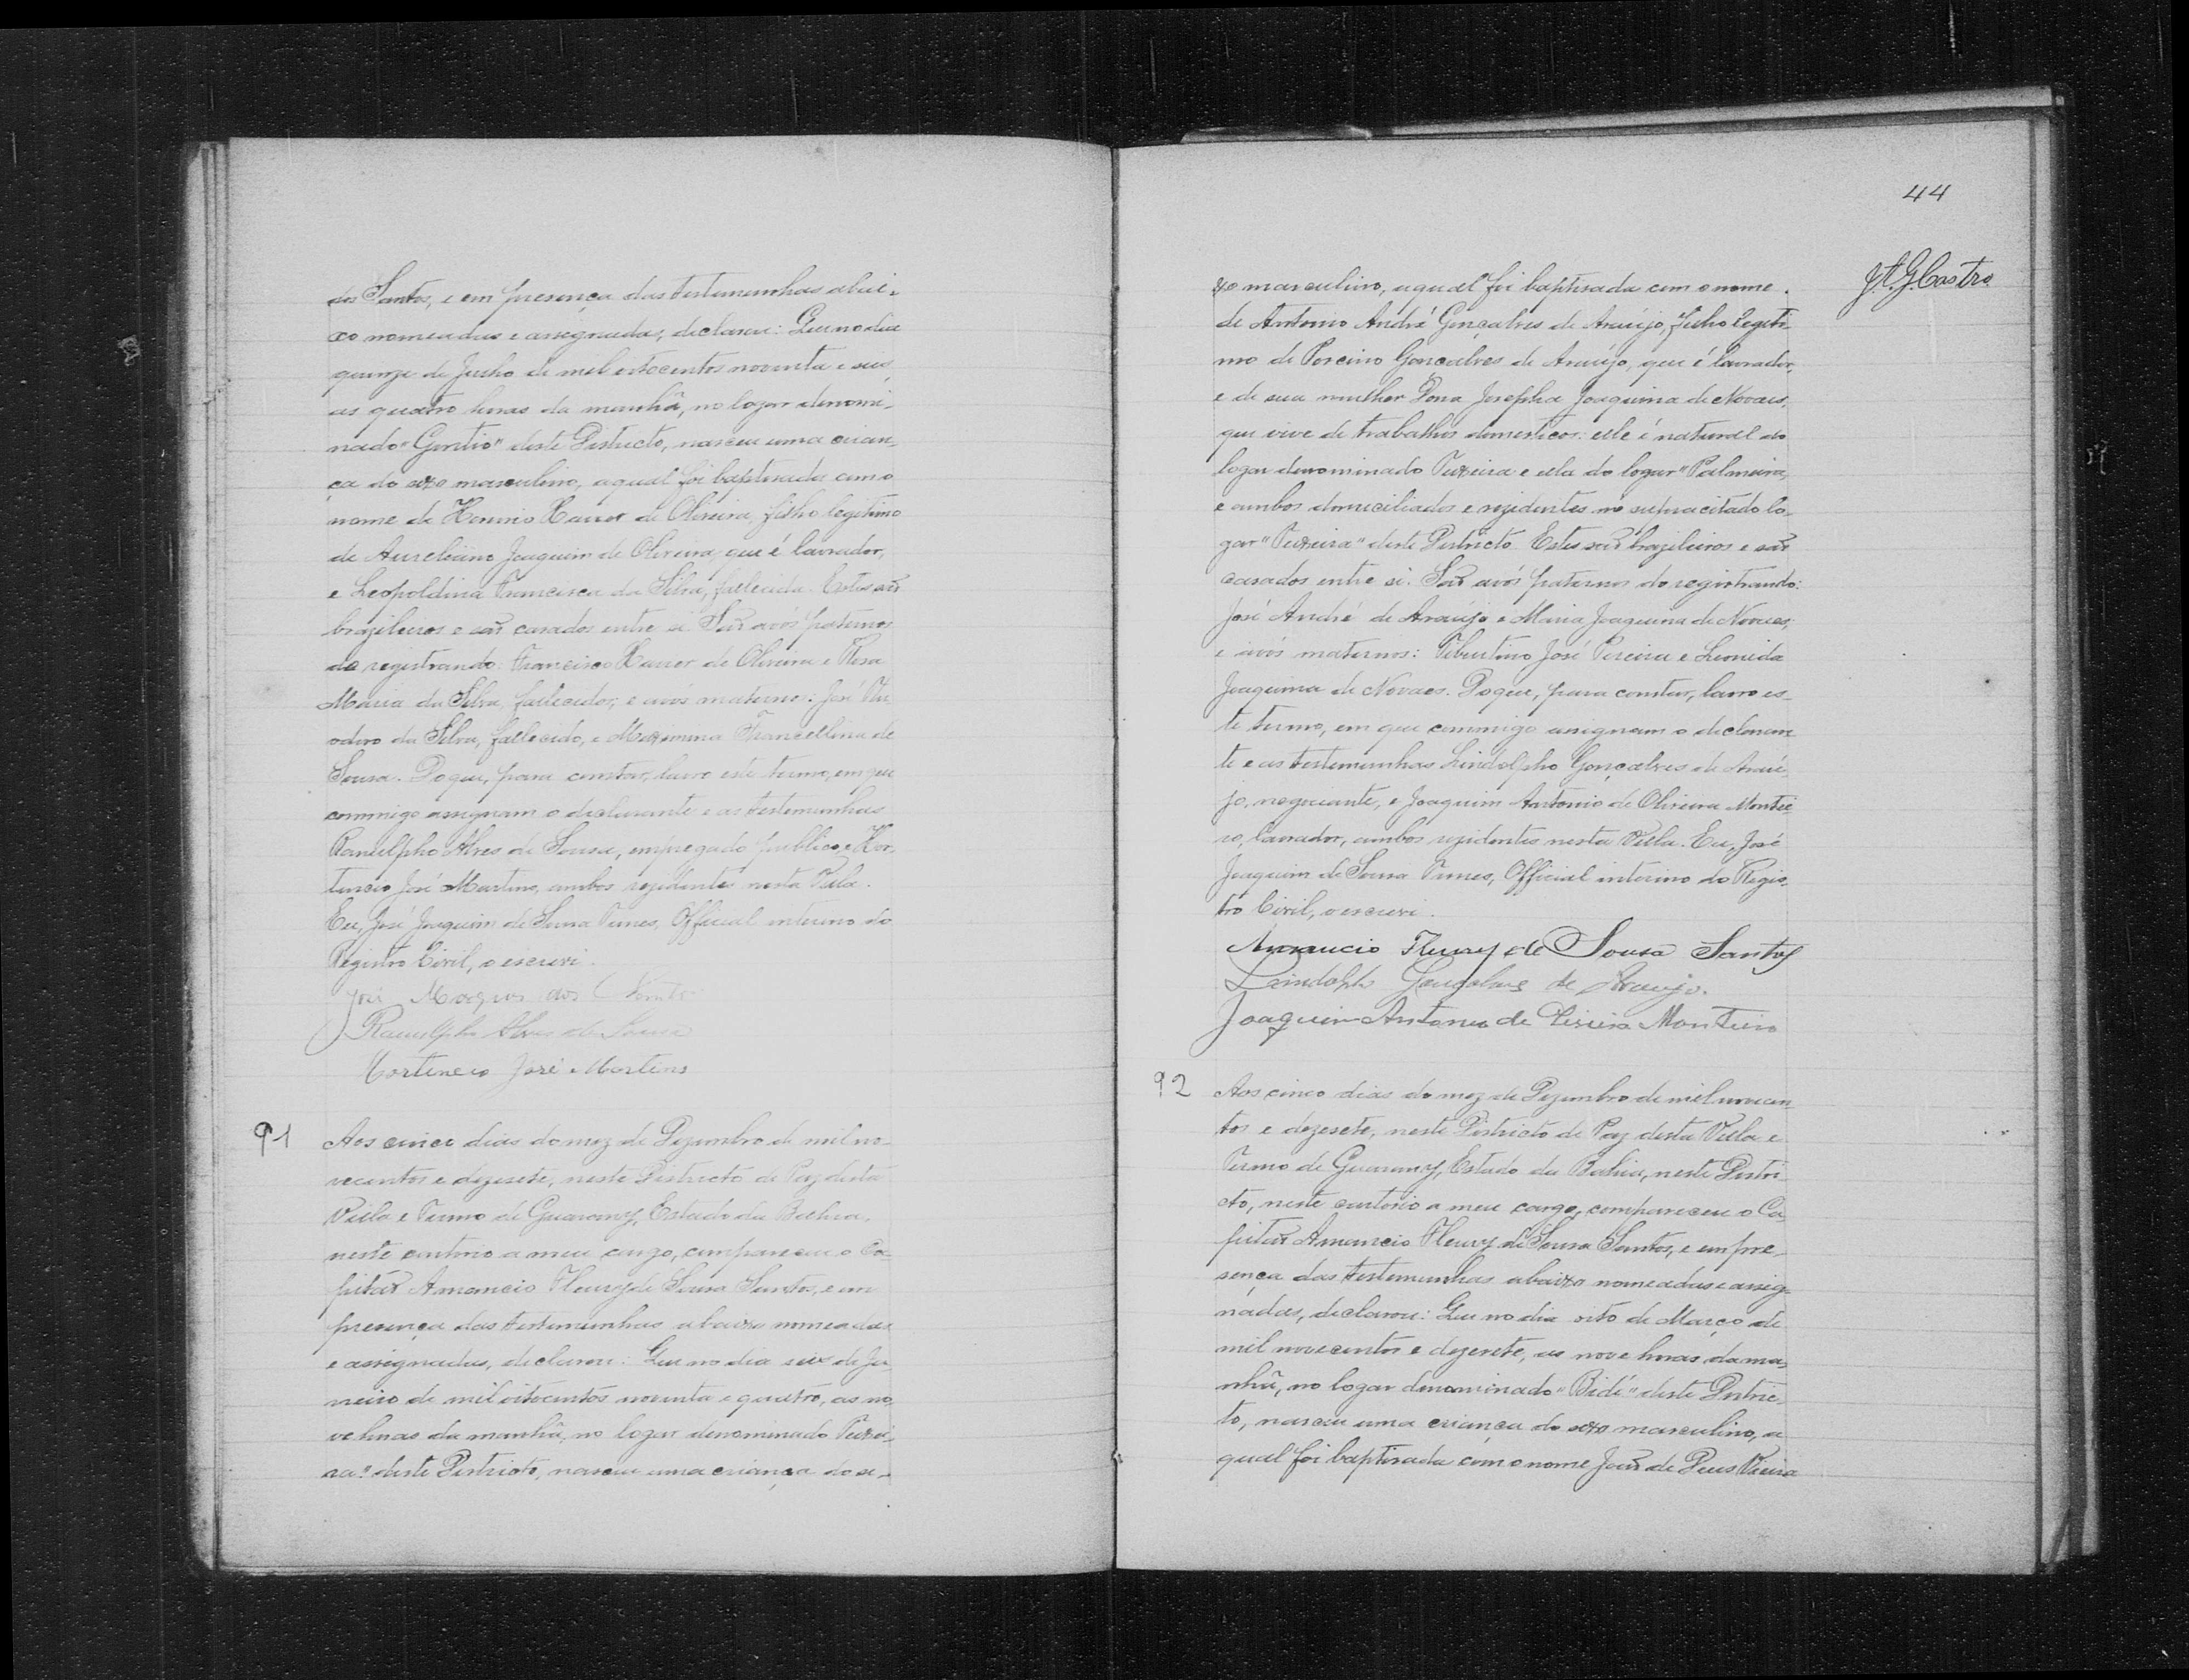 dos Santos, e em presença das testemunhas abai-
xo nomeadas e assignadas, declarou: Que no dia
quinze de Julho de mil oitocentos noventa e seis,
as quatro horas da manhã, no logar denomi-
nado "Gentio" deste Districto, nasceu uma crian-
ça do sexo masculino, a qual foi baptisada com o
nome de Xavier de Oliveira, filho legitimo
de Aureliano Joaquim de Oliveira, que é lavrador,
e Leopoldina Francisca da Silva, fallecida. Estes são
brazileiros e são casados entre si. São avós paternos
do registrando: Francisco Xavier de Oliveira e Rosa
Maria da Silva, fallecidos; e avós maternos: José The-
odoro da Silva, fallecido, e Maximina Francellina de
Sousa. Do que, para constar, lavro este termo, em que
commigo assignam o declarante e as testemunhas
Ranulpho Alves de Sousa, empregado publico, e Hor-
tencio José Martins, ambos rezidentes nesta Villa.
Eu, José Joaquim de Sousa Nunes, Official interino do
Registro Civil, o escrevi.
José Marques dos Santos
Ranulpho Alves de Sousa
Hortencio José Martins
91 Aos cinco dias do mez de Dezembro de mil no-
vecentos e dezesete, neste Districto de Paz desta
Villa e Termo de Guarany, Estado da Bahia,
neste cartorio a meu cargo, compareceu o Ca-
pitão Amancio Fleury de Sousa Santos, e em
presença das testemunhas abaixo nomeadas
e assignadas, declarou: Que no dia seis de Ja-
neiro de mil oitocentos noventa e quatro, as no-
ve horas da manhã, no logar denominado Teixei-
ra" deste Districto, nasceu uma criança do se-
44
J. A. G. Castro
xo masculino, a qual foi baptisada com o nome
de Antonio André Gonçalves de Araújo, filho legiti-
mo de Porcino Gonçalves de Araújo, que é lavrador,
e de sua mulher Dona Josepha Joaquina de Novaes,
que vive de trabalhos domesticos: elle é natural do
logar denominado Teixeira e ella do logar "Palmeira,
e ambos domiciliados e rezidentes no supracitado lo-
gar "Teixeira" deste Districto. Estes são brazileiros e são
casados entre si. São avós paternos do registrando:
José André de Araújo e Maria Joaquina de Novaes;
e avós maternos: Tiburtino José Pereira e Leonida
Joaquina de Novaes. Do que, para constar, lavro es-
te termo, em que commigo assignam o declaran-
te e as testemunhas Lindolpho Gonçalves de Araú-
jo, negociante, e Joaquim Antonio de Oliveira Montei-
ro, lavrador, ambos rezidentes nesta Villa. Eu, José
Joaquim de Sousa Nunes, Official interino do Regis-
tro Civil, o escrevi.
Amancio Fleury de Sousa Santos
Lindolpho Gonçalves de Araujo.
Joaquim Antonio de Monteiro
92 Aos cinco dias do mez de Dezembro de mil novecen-
tos e dezesete, neste Districto de Paz desta Villa e
Termo de Guarany, Estado da Bahia, neste Distri-
cto, neste cartorio a meu cargo, compareceu o Ca-
pitão Amancio Fleury de Sousa Santos, e em pre-
sença das testemunhas abaixo nomeadas e assig-
nadas, declarou: Que no dia oito de Março de
mil novecentos e dezesete, as nove horas da ma-
nhã, no logar denominado "Bidé" deste Distric-
to, nasceu uma criança do sexo masculino, a
qual foi baptisada com o nome João de Deus Vieira